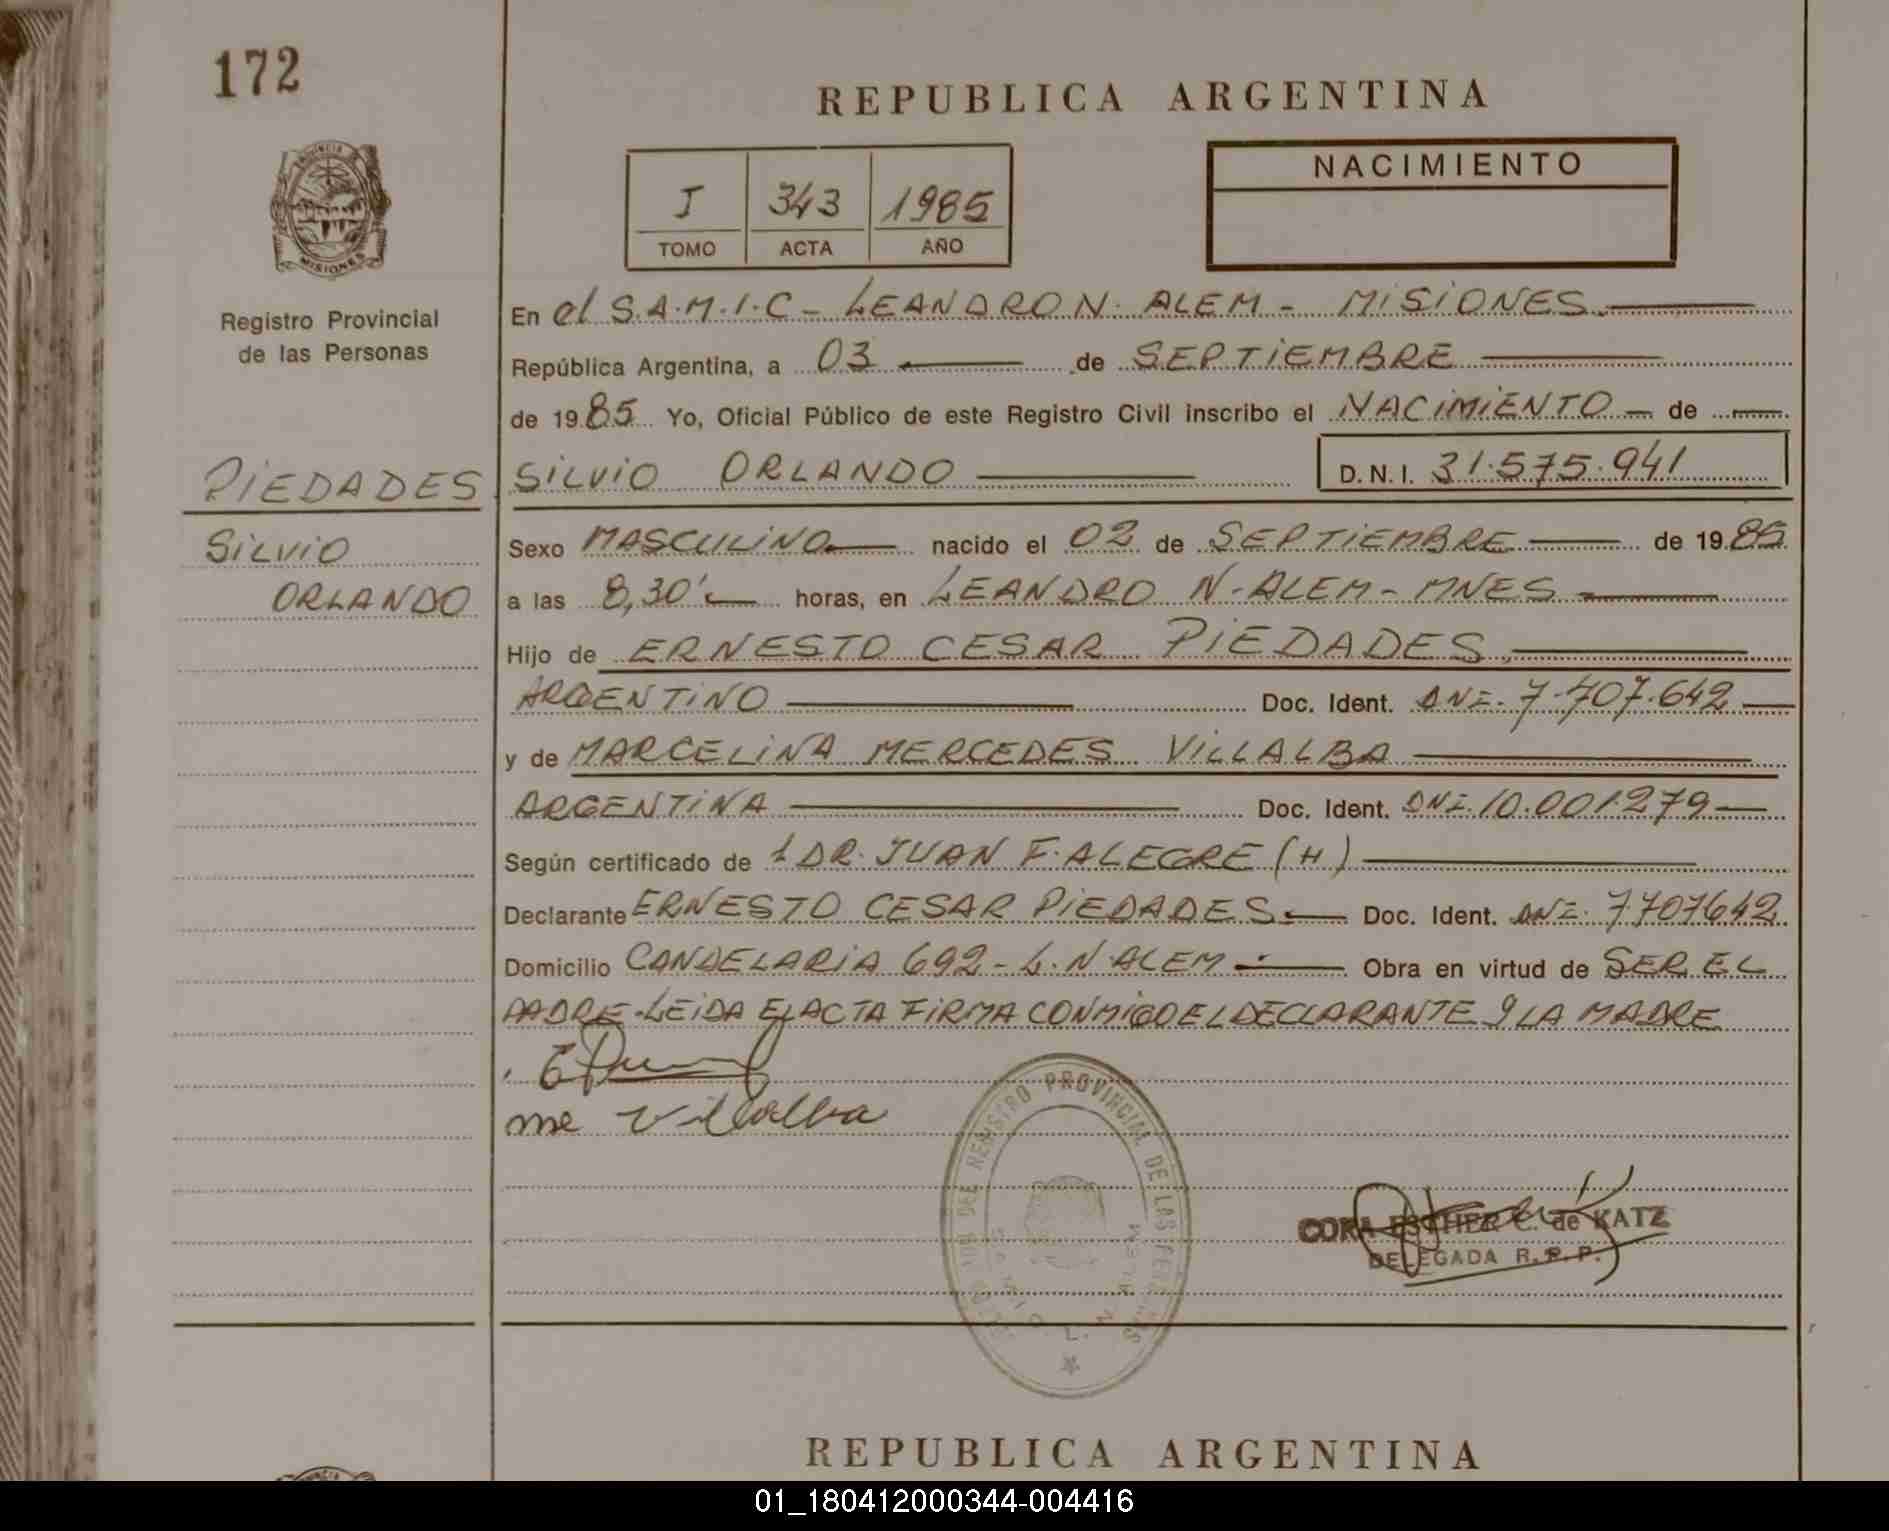 172
REPUBLICA ARGENTINA
I 343 1985
TOMO ACTA AÑO
NACIMIENTO
PROVINCIA
MISIONES
Registro Provincial
de las Personas
PIEDADES
SILVIO
ORLANDO
En el S.A.M.I.C - LEANDRO N. ALEM - MISIONES.
República Argentina, a 03 de SEPTIEMBRE
de 1985 Yo, Oficial Público de este Registro Civil inscribo el NACIMIENTO de
SILVIO ORLANDO D.N.I. 31.575.941
Sexo MASCULINO nacido el 02 de SEPTIEMBRE de 1985
a las 8,30' horas, en LEANDRO N-ALEM-MNES
Hijo de ERNESTO CESAR PIEDADES.
ARGENTINO Doc. Ident. DNI. 7.707.642
y de MARCELINA MERCEDES VILLALBA
ARGENTINA Doc. Ident. DNI. 10.001.279
Según certificado de DR. JUAN F. ALEGRE (H)
Declarante ERNESTO CESAR PIEDADES Doc. Ident. DNI. 7707642
Domicilio CANDELARIA 692 - L.N.ALEM Obra en virtud de SER EL
PADRE-LEIDA EL ACTA FIRMA CONMIGO EL DECLARANTE Y LA MADRE
me Villalba
REGISTRO PROVINCIAL DE LAS PERSONAS
CORA ESTHER C. de KATZ
DELEGADA R.P.P.
REPUBLICA ARGENTINA
01_180412000344-004416